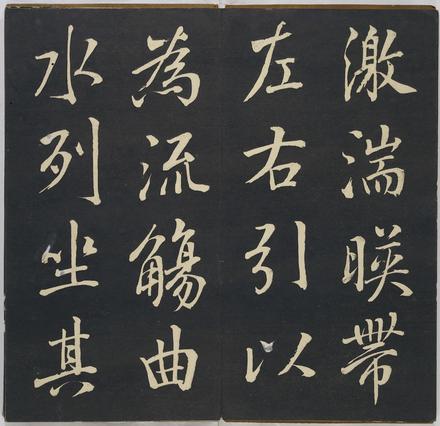 激湍暎帶
左右引以
為流觴曲
水列坐其